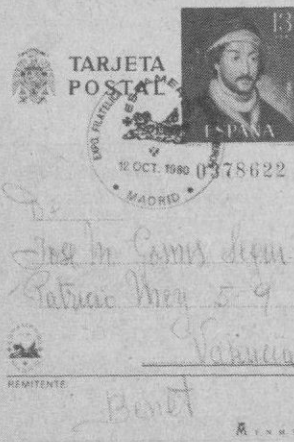 13
TARJETA
POSTAL
ESPAÑA
EXPO. FILATELICA
12 OCT. 1980
MADRID
0378622
Jose M
Patricio Mey 5 9
Valencia
REMITENTE:
Benet